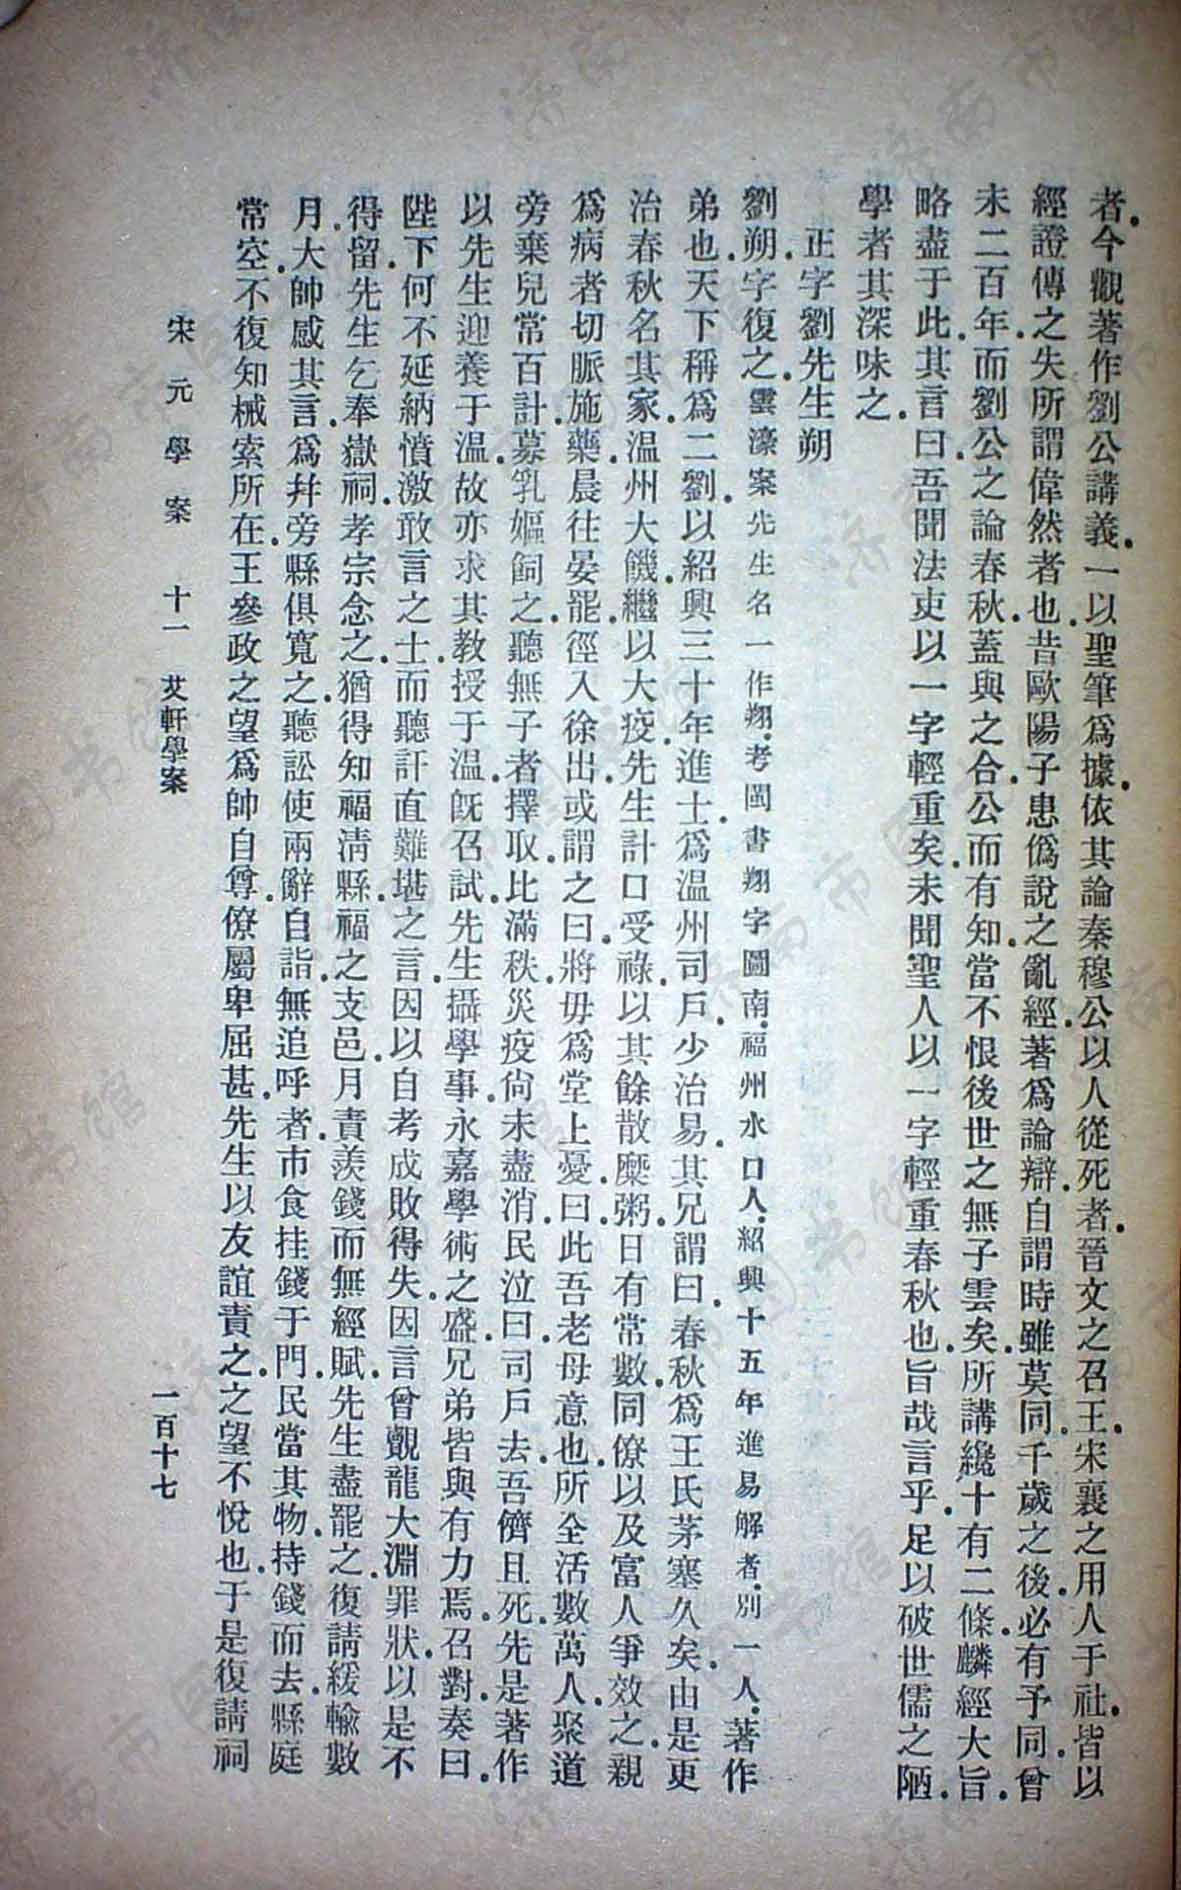 者.今觀著作劉公講義.一以聖筆爲據.依其論秦穆公以人從死者.晉文之召王.宋襄之用人于社.皆以
經證傳之失.所謂偉然者也.昔歐陽子患僞說之亂經.著爲論辯.自謂時雖莫同.千歲之後.必有予同.曾
未二百年.而劉公之論春秋.蓋與之合.公而有知.當不恨後世之無子雲矣.所講纔十有二條.麟經大旨.
略盡于此.其言曰.吾聞法吏以一字輕重矣.未聞聖人以一字輕重春秋也.旨哉言乎.足以破世儒之陋.
學者其深味之.
正字劉先生朔
劉朔.字復之.雲濠案先生名一作翔.考閩書翔字圖南.福州水口人.紹興十五年進易解者.別一人.著作
弟也.天下稱爲二劉.以紹興三十年進士.爲溫州司戶.少治易.其兄謂曰.春秋爲王氏茅塞久矣.由是更
治春秋名其家.溫州大饑.繼以大疫.先生計口受祿.以其餘散糜粥.日有常數.同僚以及富人爭效之.親
爲病者切脈施藥.晨往晏罷.徑入徐出.或謂之曰.將毋爲堂上憂.曰.此吾老母意也.所全活數萬人.聚道
旁棄兒常百計.募乳嫗飼之.聽無子者擇取.比滿秩.災疫尙未盡消.民泣曰.司戶去.吾儕且死.先是著作
以先生迎養于溫.故亦求其教授于溫.旣召試.先生攝學事.永嘉學術之盛.兄弟皆與有力焉.召對.奏曰.
陛下何不延納憤激敢言之士.而聽訐直難堪之言.因以自考成敗得失.因言曾覿龍大淵罪狀.以是不
得留.先生乞奉嶽祠.孝宗念之.猶得知福淸縣.福之支邑.月責羨錢而無經賦.先生盡罷之.復請緩輸數
月.大帥感其言.爲幷旁縣俱寬之.聽訟使兩辭自詣.無追呼者.市食挂錢于門.民當其物.持錢而去.縣庭
常空.不復知械索所在.王參政之望爲帥自尊.僚屬卑屈甚.先生以友誼責之.之望不悅也.于是復請祠
宋元學案 十一 艾軒學案
一百十七